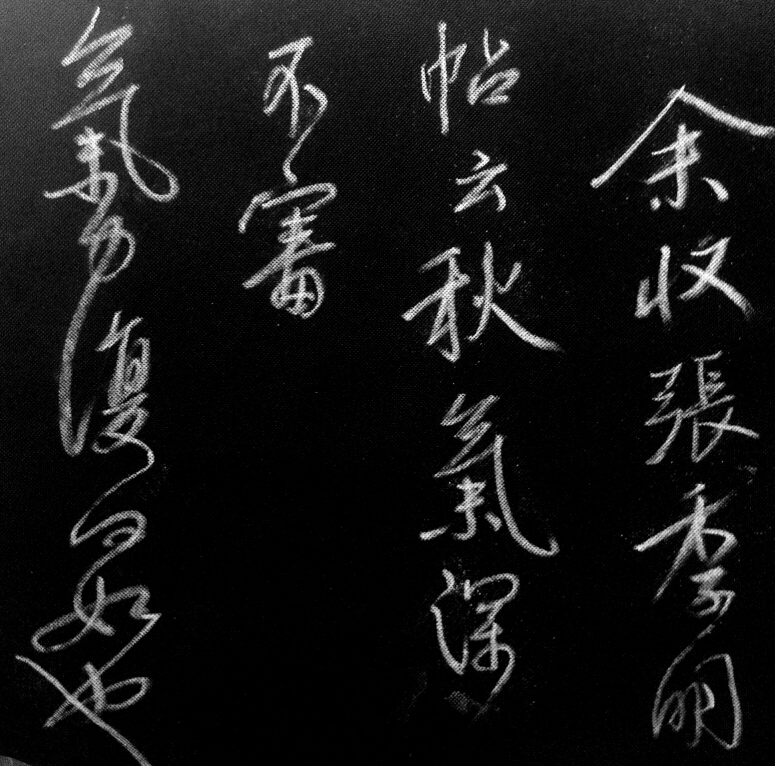 余收張季明
帖云秋氣深
不審
氣力復何如也